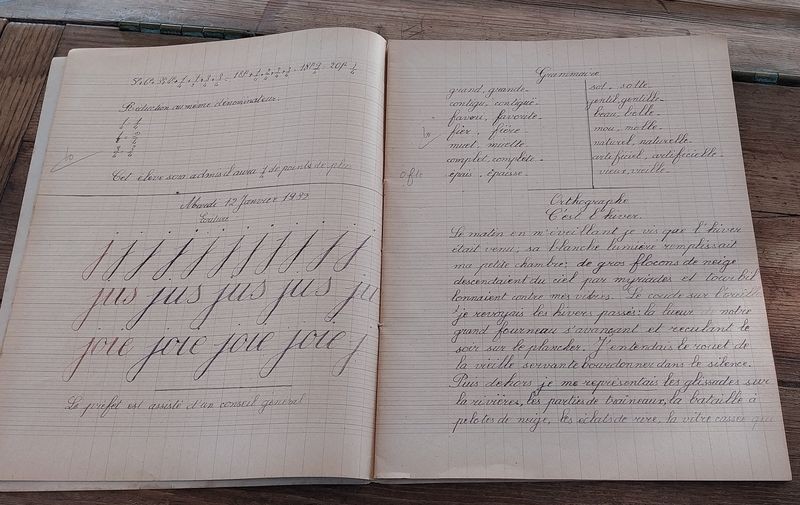 Réduction au même dénominateur.
Cet élève sera admis il aura de points de plus
Mardi 12 Janvier
Ecriture
j j j j j j j j j
jus jus jus jus ju
joie joie joie joie j
Le préfet est assisté d'un conseil général
Grammaire
grand, grande.
contigu, contiguë.
favori, favorite.
fier, fière.
muet, muette.
complet, complète.
épais, épaisse.
sot, sotte.
gentil, gentille.
beau, belle.
mou, molle.
naturel, naturelle.
vieux, vieille.
Orthographe
C'est l'hiver.
Le matin en m'éveillant je vis que l'hiver
était venu; sa blanche lumière remplissait
ma petite chambre; de gros flocons de neige
descendaient du ciel par myriades et tourbil
lonnaient contre mes vitres. Le coude sur l'oreill
je revoyais les hivers passés: la lueur de notre
grand fourneau s'avançant et reculant le
soir sur le plancher. J'entendais le rouet de
la vieille servante bourdonner dans le silence.
Puis dehors je me représentais les glissades sur
la rivières, les parties de traîneaux, la bataille à
pelotes de neige, les éclats de rire, la vitre cassée qui